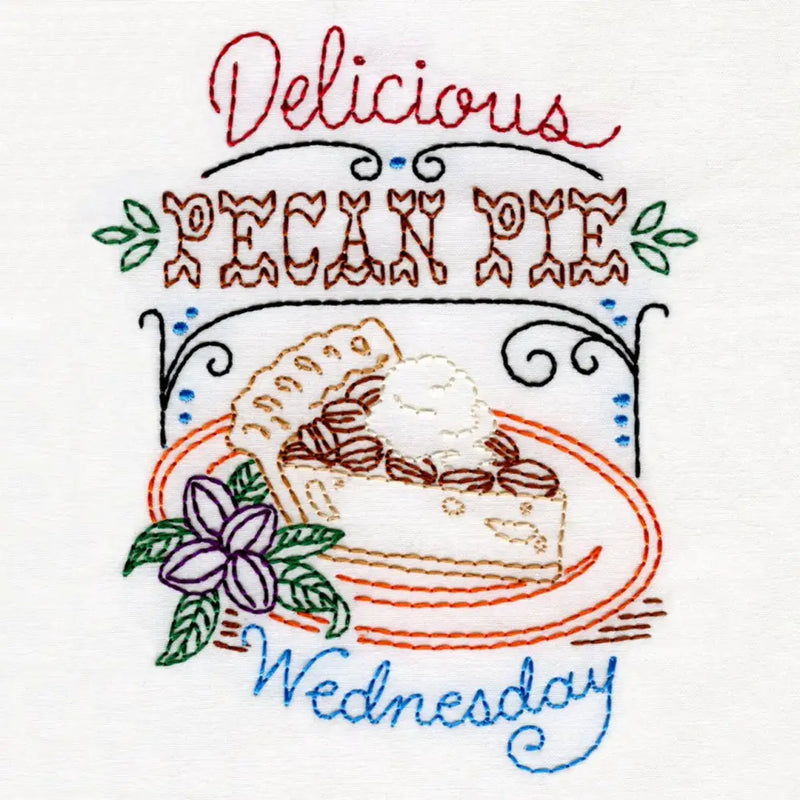 Delicious
PECAN PIE
Wednesday